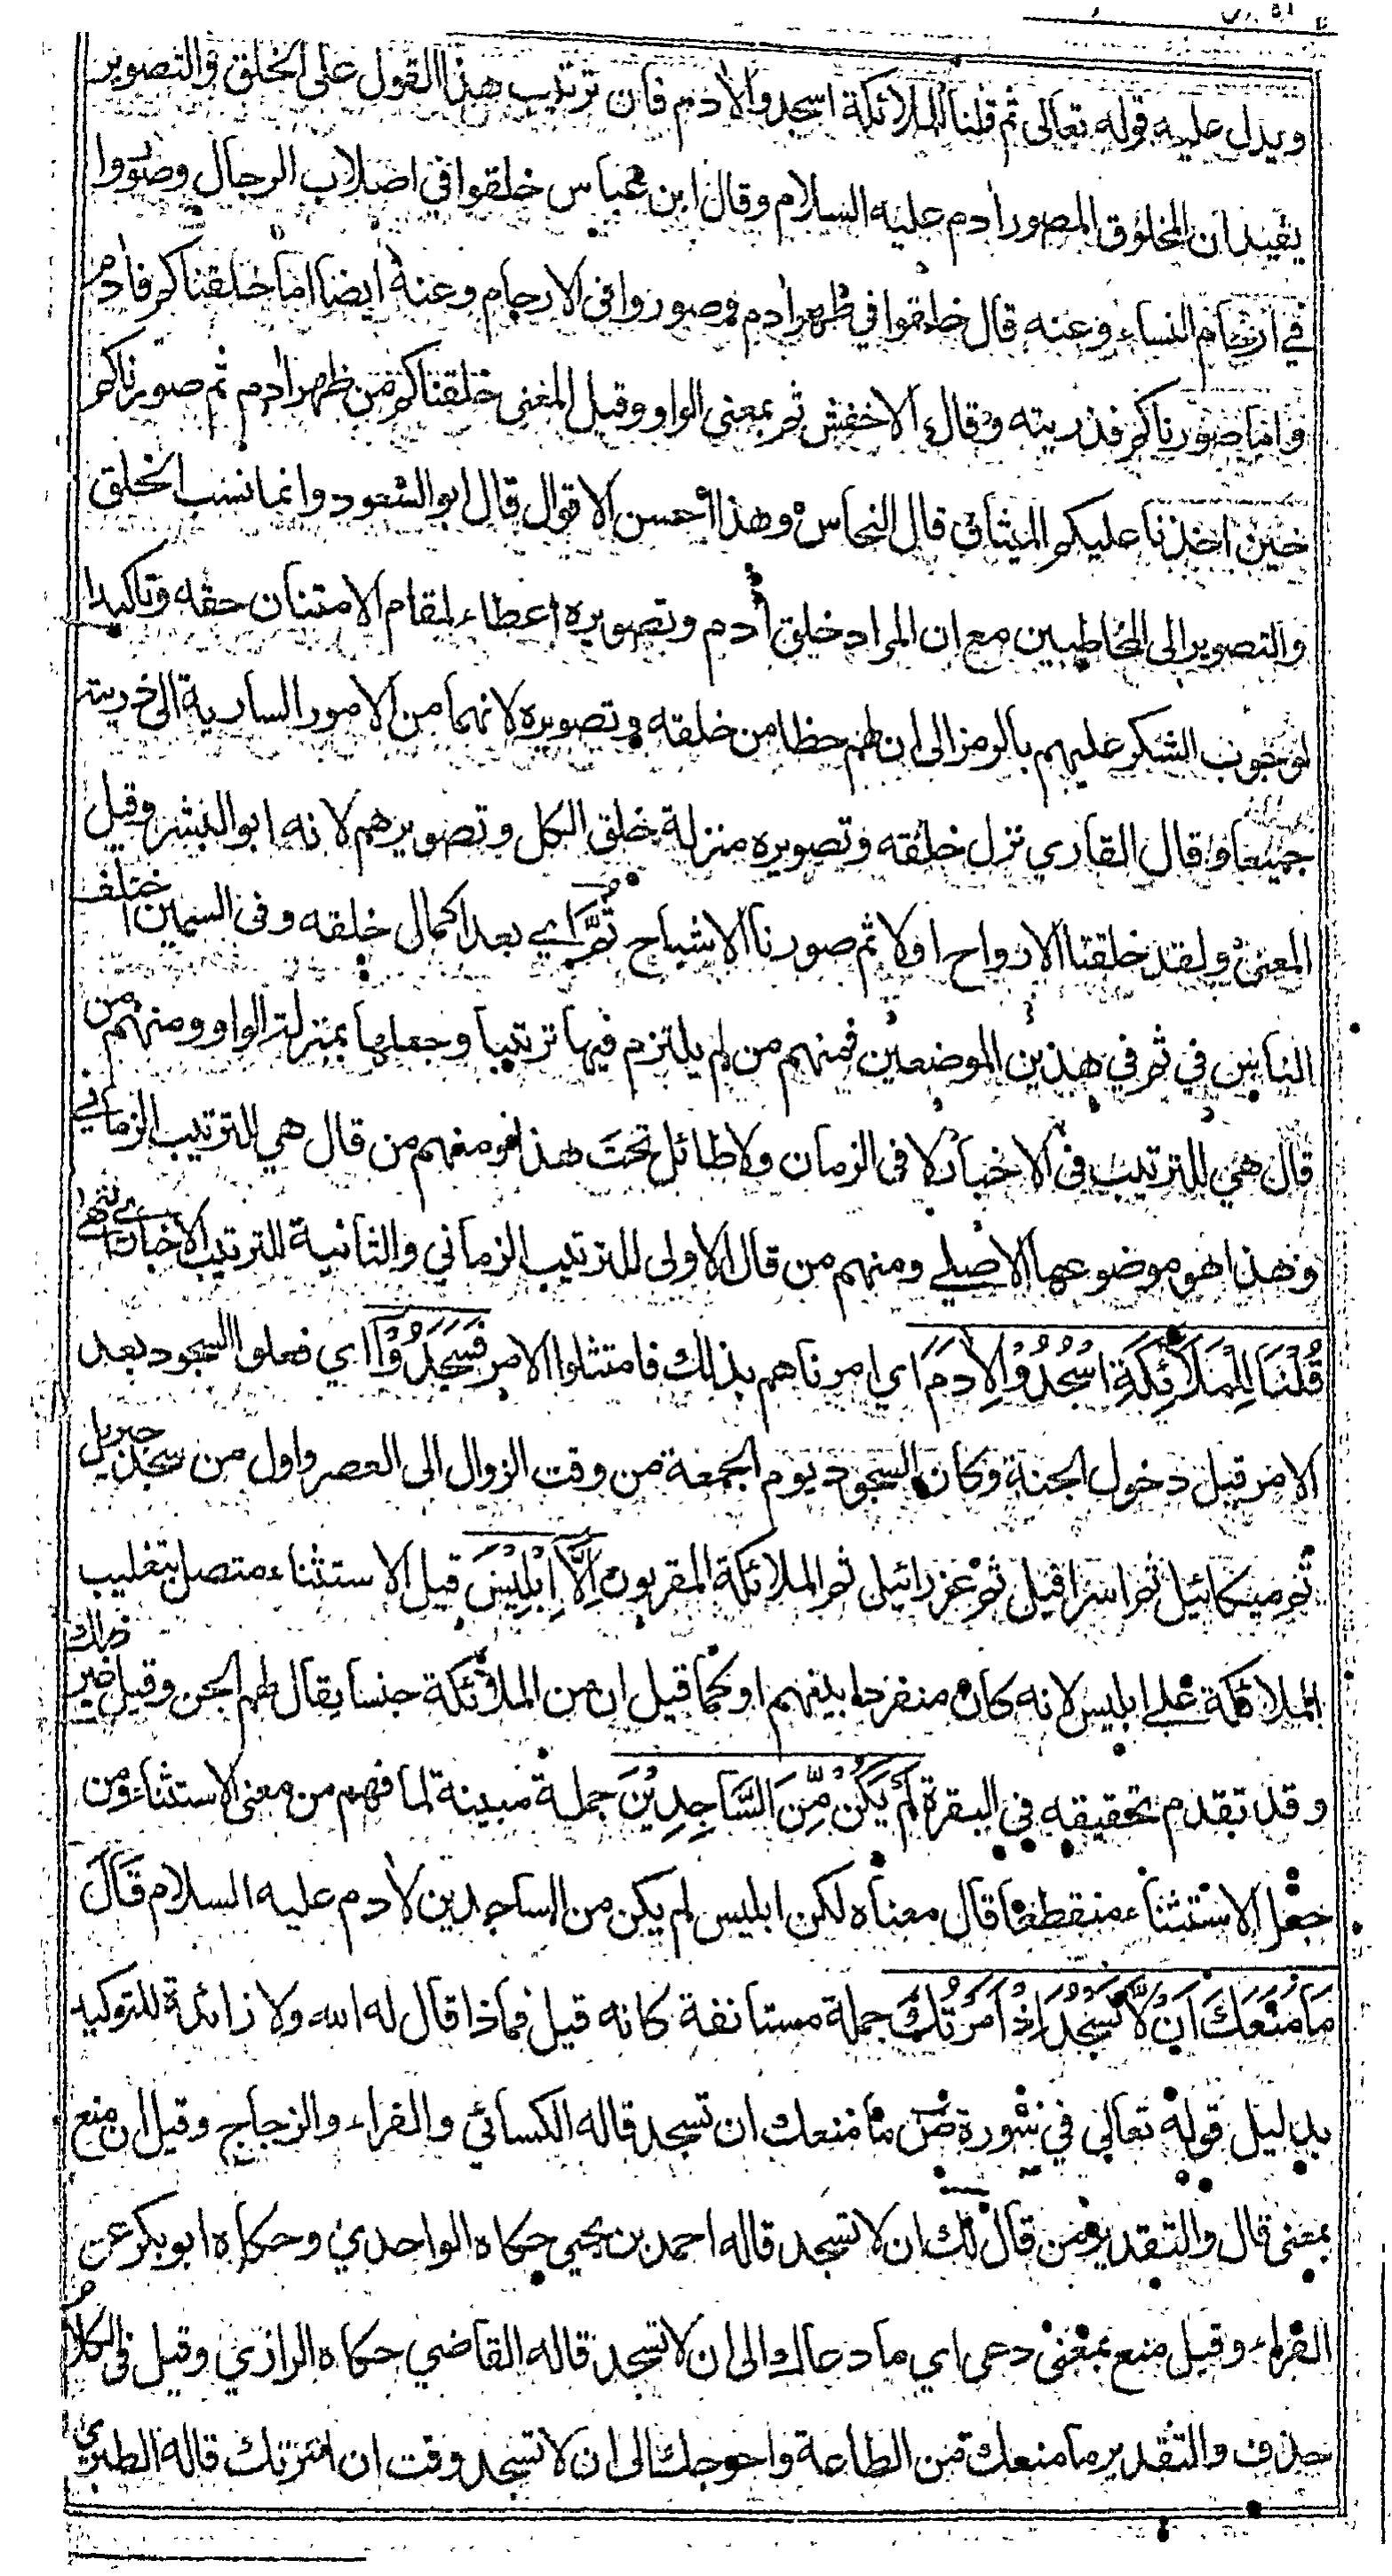 ويدل عليه قوله تعالى ثم قلنا للملائكة اسجدوا لأدم فان ترتيب هذا القول على الخلق والتصوير
يفيد ان المخلوق المصور أدم عليه السلام وقال ابن عباس خلقوا في اصلاب الرجال وصوروا
في ارحام النساء وعنه قال خلقوا في ظهر أدم وصوروا في الارحام وعنه ايضا اما خلقناكم فأدم
واما صورناكم فذريته وقال الاخفش ثم بمعنى الواو وقيل المعنى خلقناكم من ظهر أدم ثم صورناكم
حين اخذنا عليكم الميثاق قال النحاس وهذا أحسن الاقوال قال ابو السعود وانما نسب الخلق
والتصوير الى المخاطبين مع ان المراد خلق أدم وتصويره اعطاء لمقام الامتنان حقه وتاكيدا
لوجوب الشكر عليهم بالرمز الى ان لهم حظا من خلقه وتصويره لانهما من الامور السارية الى ذريته
جميعا وقال القاري نزل خلقه وتصويره منزلة خلق الكل وتصويرهم لانه ابو البشر وقيل
المعنى ولقد خلقنا الارواح اولا ثم صورنا الاشباح ثُمَّ اي بعد اكمال خلقه وفى السمين اختلف
الناس في ثم في هذين الموضعين فمنهم من لم يلتزم فيها ترتيبا وجعلها بمنزلة الواو ومنهم من
قال هي للترتيب فى الاخبار لا فى الزمان ولا طائل تحت هذا ومنهم من قال هي للترتيب الزماني
وهذا هو موضوعها الاصلي ومنهم من قال الاولى للترتيب الزماني والثانية للترتيب الاخباري انتهى
قُلْنَا لِلْمَلَائِكَةِ اسْجُدُوْا لِأدَمَ اي امرناهم بذلك فامتثلوا الامر فَسَجَدُوْا اي فعلوا السجود بعد
الامر قبل دخول الجنة وكان السجود يوم الجمعة من وقت الزوال الى العصر واول من سجد جبريل
ثم ميكائيل ثم اسرافيل ثم عزرائيل ثم الملائكة المقربون اِلَّا اِبْلِيْسَ قيل الاستثناء متصل بتغليب
الملائكة على ابليس لانه كان منفردا بينهم او كما قيل ان من الملائكة جنسا يقال لهم الجن وقيل غير ذلك
وقد تقدم تحقيقه في البقرة لَمْ يَكُنْ مِّنَ السَّاجِدِيْنَ جملة مبينة لما فهم من معنى الاستثناء ومن
جعل الاستثناء منقطعا قال معناه لكن ابليس لم يكن من الساجدين لأدم عليه السلام قَالَ
مَا مَنَعَكَ اَنْ لَّا تَسْجُدَ اِذْ اَمَرْتُكَ جملة مستانفة كانه قيل فماذا قال له الله ولا زائدة للتوكيد
بدليل قوله تعالى في سورة ص ما منعك ان تسجد قاله الكسائي والفراء والزجاج وقيل ان منع
بمعنى قال والتقدير من قال لك ان لا تسجد قاله احمد بن يحيى حكاه الواحدي وحكاه ابو بكر عن
الفراء وقيل منع بمعنى دعى اي ما دعاك الى ان لا تسجد قاله القاضي حكاه الرازي وقيل فى الكلام
حذف والتقدير ما منعك من الطاعة واحوجك الى ان لا تسجد وقت ان امرتك قاله الطبري